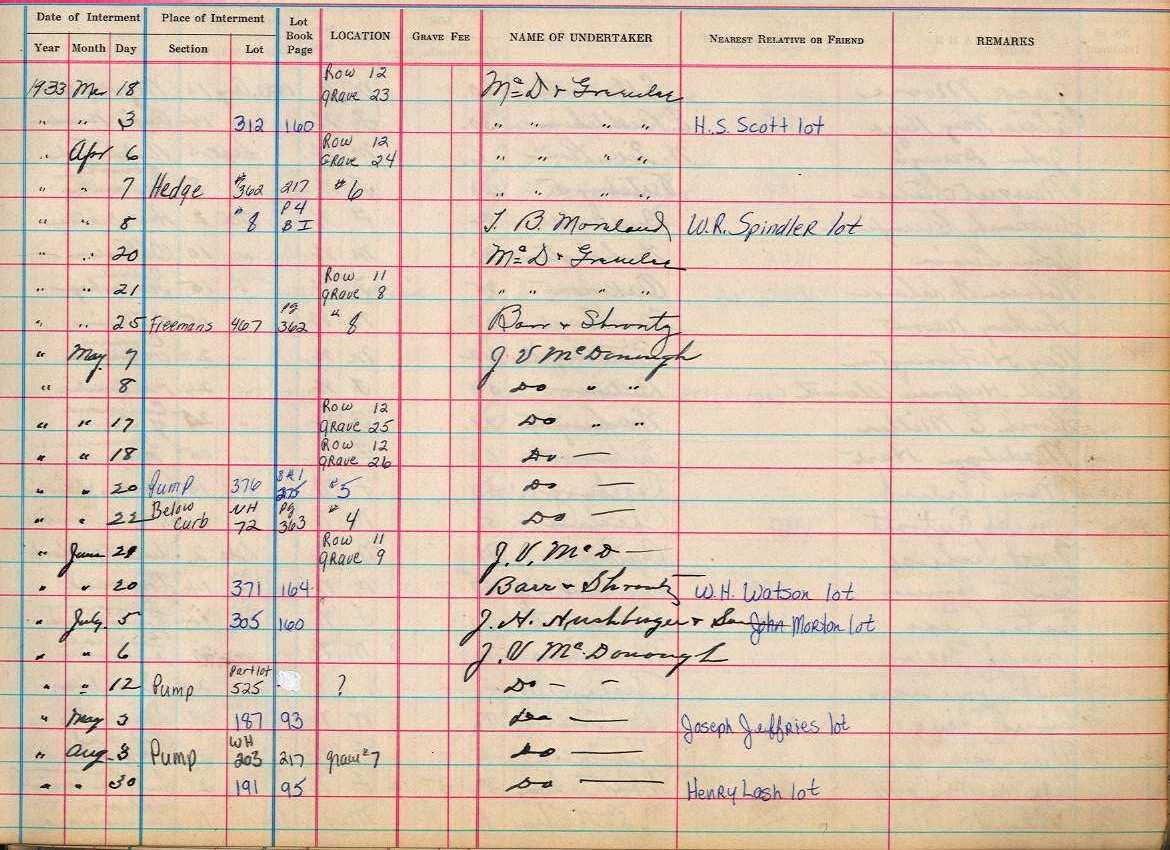 Date of Interment Place of Interment Lot Book Page LOCATION GRAVE FEE NAME OF UNDERTAKER NEAREST RELATIVE OR FRIEND REMARKS
Year Month Day Section Lot
1933 Mar 18 Row 12 grave 23
" " 3 312 160 " " " " H.S. Scott lot
" Apr 6 Row 12 Grave 24 " " " "
" " 7 Hedge #362 217 #6 " " " "
" " 8 " 8 P 4 B I J. B. Moreland W.R. Spindler lot
" " 20
" " 21 Row 11 grave 8 " " " "
" " 25 Freemans 467 Pg 362 " 8 Barr & Shrontz
" May 7 J. V McDonough
" " 8 Do " "
" " 17 Row 12 grave 25 Do " "
" " 18 Row 12 grave 26 Do —
" " 20 Pump 376 #5 Do —
" " 22 Below Curb NH 72 Pg 363 # 4 Do —
" June Row 11 grave 9 J. V. McD —
" " 20 371 164 Barr & Shrontz W.H. Watson lot
" July 5 305 160 J. H. & Son John Morton lot
" " 6 J. V McDonough
" " 12 Pump Part lot 525 ? Do — –
" May 3 187 93 Do — Joseph Jeffries lot
" Aug 3 Pump WH 203 217 grave #7 Do —
" " 30 191 95 Do — Henry Lash lot